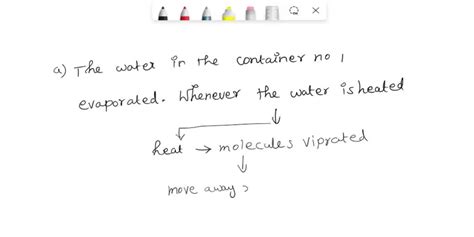 a) The water in the container no 1
evaporated. Whenever the water is heated
heat → molecules viprated
move away